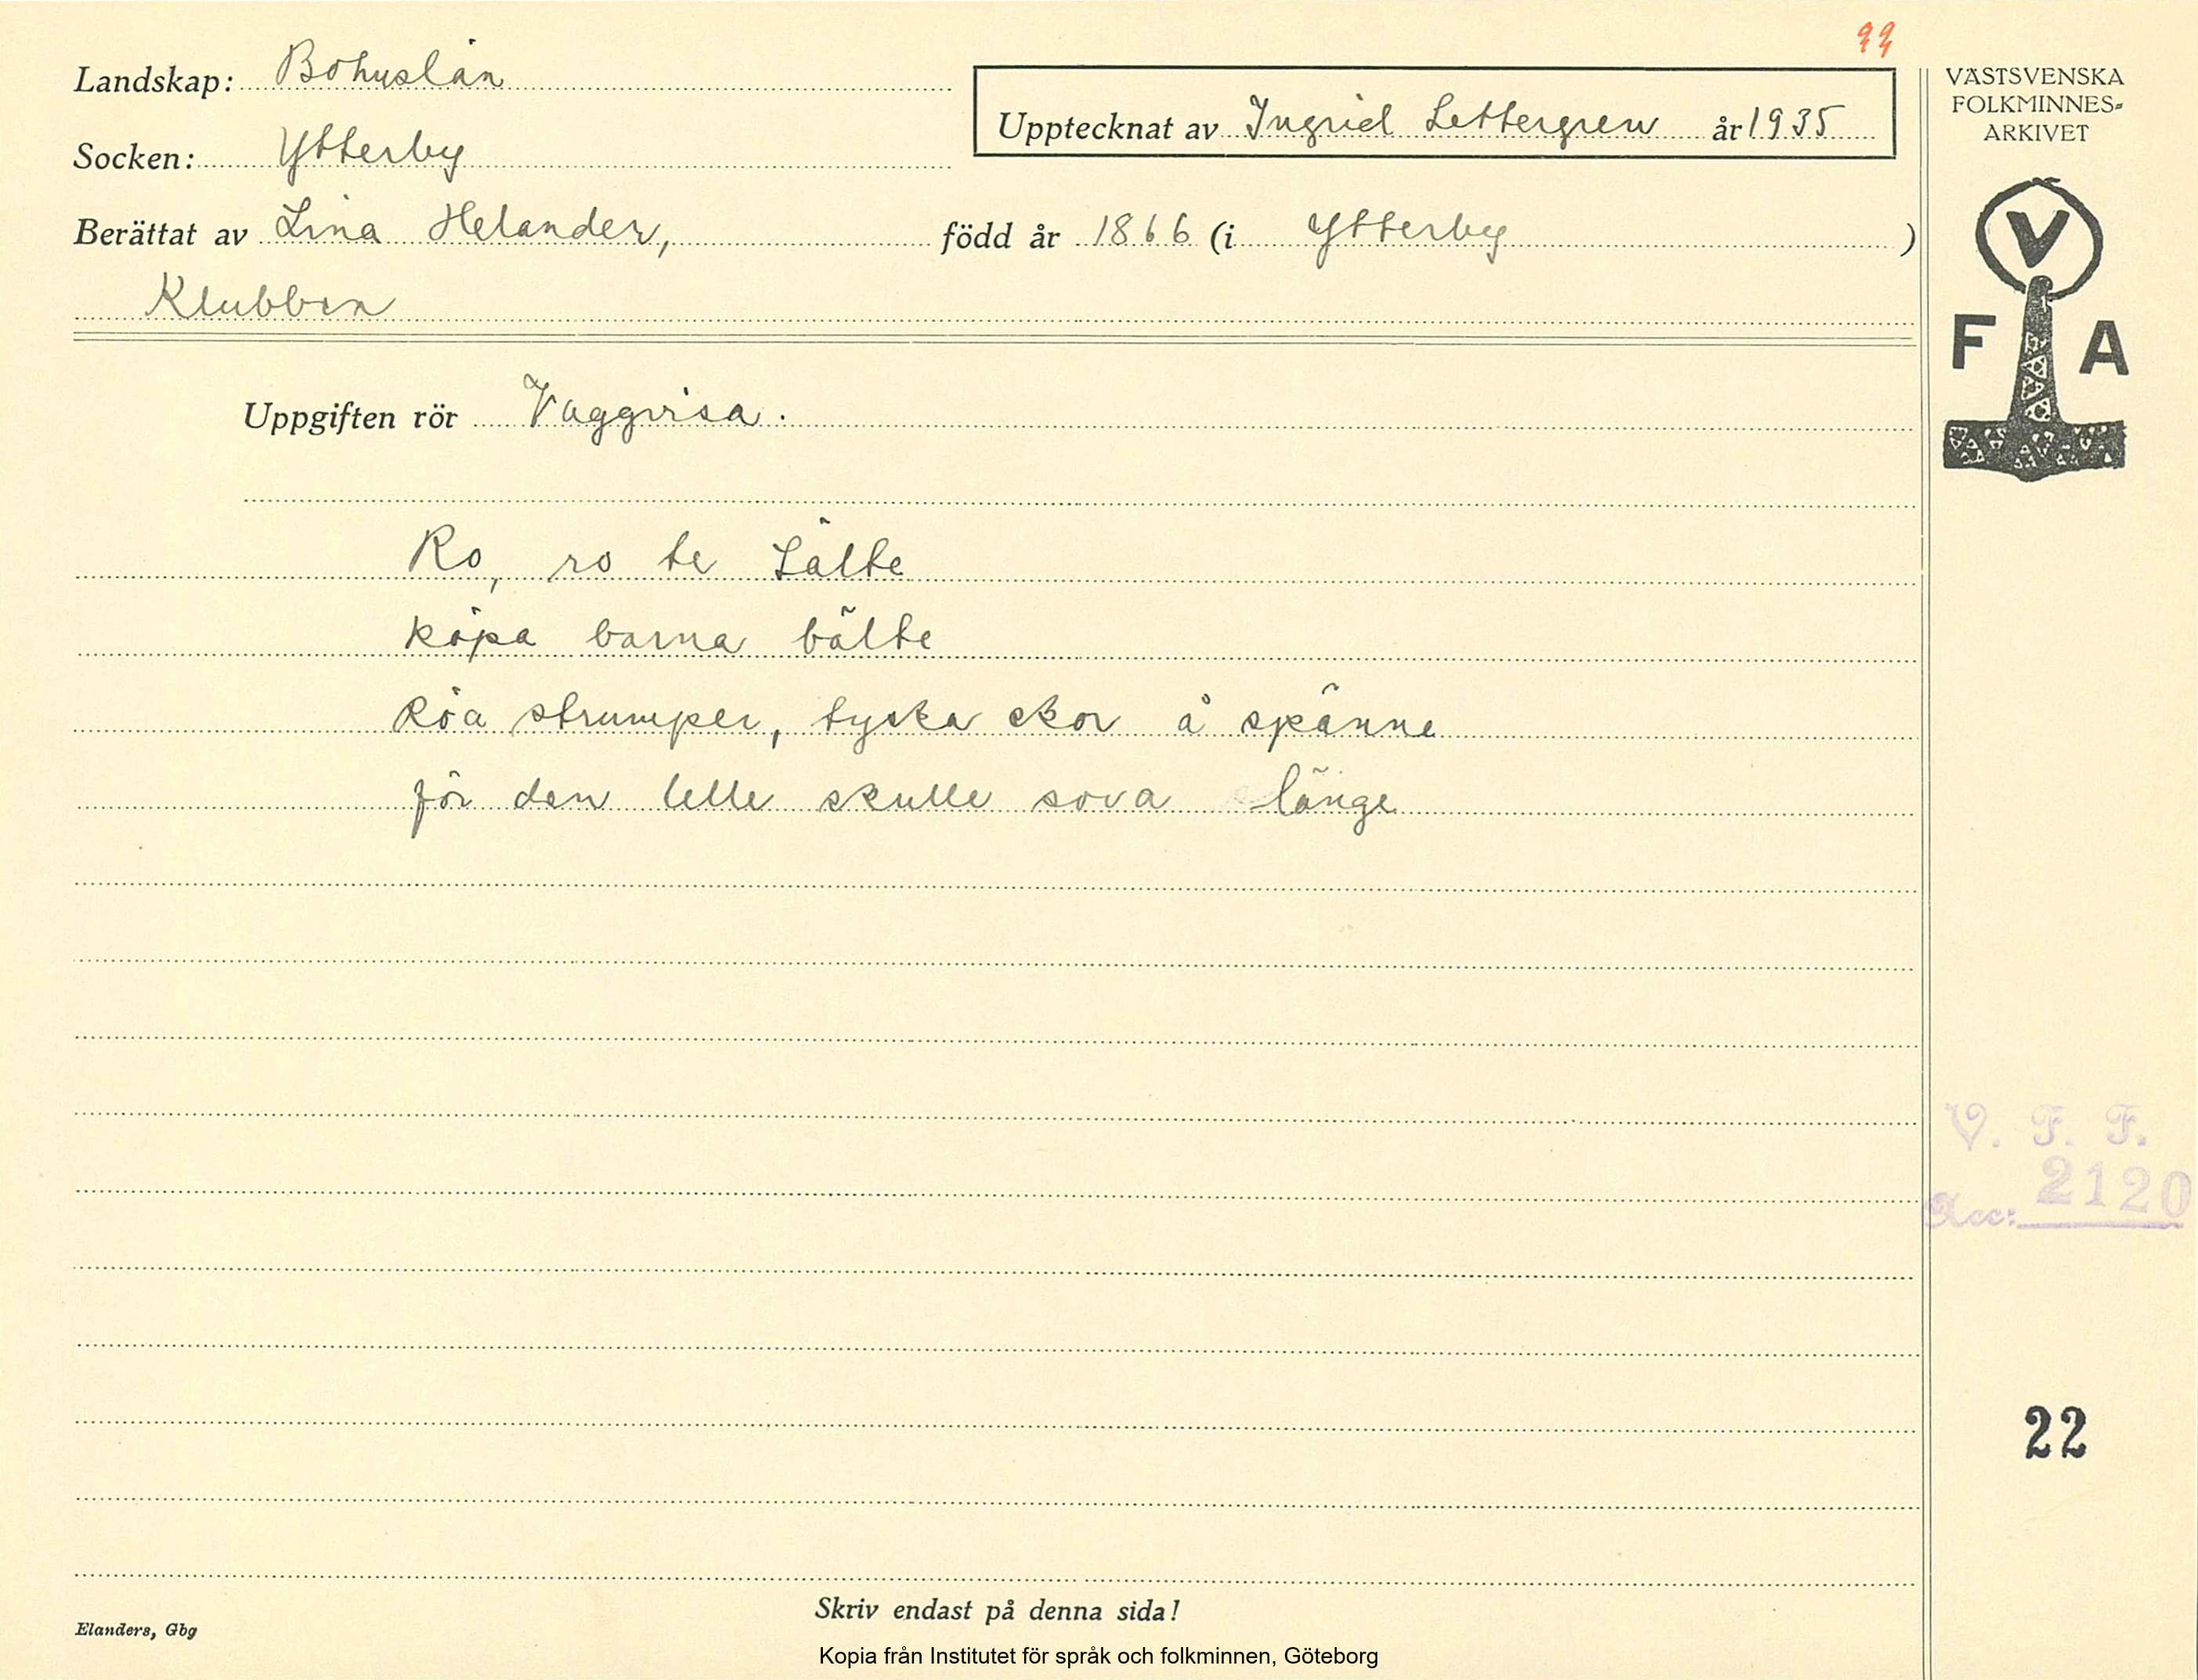 99
Landskap: Bohuslän
Upptecknat av Ingrid Settergren år 1935
Socken: Ytterby
Berättat av Lina Helander, född år 1866 (i Ytterby )
Klubben
Uppgiften rör Vaggvisa.
Ro, ro te Sälte
köpa barna bälte
Röa strumper, tyska skor å spänne
för den lelle skulle sova länge
VÄSTSVENSKA
FOLKMINNES-
ARKIVET
V
F A
V. F. F.
Acc: 2120
22
Skriv endast på denna sida!
Elanders, Gbg
Kopia från Institutet för språk och folkminnen, Göteborg